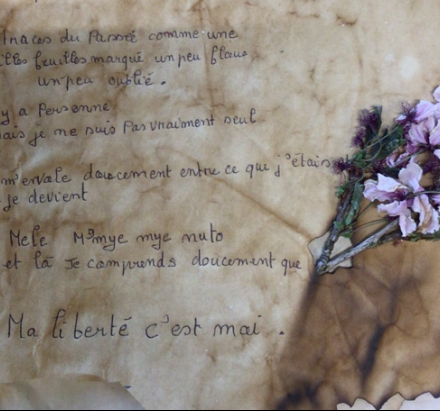 traces du Passé comme une
feuilles marqué un peu
un peu oublié.
y a Personne
mais je ne suis Pas vraiment seul
doucement entre ce que j'étais
je devient
Mele mye mye nuto
et là Je comprends doucement que
Ma liberté c'est mai.